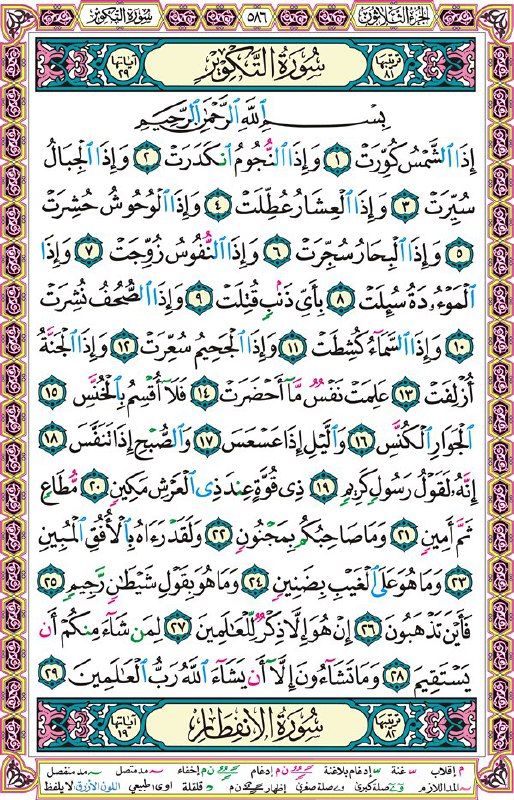 الجزء الثلاثون ٥٨٦ سورة التكوير
ترتيبها ٨١ سُورَةُ التَّكْوِيرِ آياتها ٢٩
بِسْمِ ٱللَّهِ ٱلرَّحْمَٰنِ ٱلرَّحِيمِ
إِذَا ٱلشَّمْسُ كُوِّرَتْ ١ وَإِذَا ٱلنُّجُومُ ٱنكَدَرَتْ ٢ وَإِذَا ٱلْجِبَالُ
سُيِّرَتْ ٣ وَإِذَا ٱلْعِشَارُ عُطِّلَتْ ٤ وَإِذَا ٱلْوُحُوشُ حُشِرَتْ
٥ وَإِذَا ٱلْبِحَارُ سُجِّرَتْ ٦ وَإِذَا ٱلنُّفُوسُ زُوِّجَتْ ٧ وَإِذَا
ٱلْمَوْءُۥدَةُ سُئِلَتْ ٨ بِأَىِّ ذَنۢبٍ قُتِلَتْ ٩ وَإِذَا ٱلصُّحُفُ نُشِرَتْ
١٠ وَإِذَا ٱلسَّمَآءُ كُشِطَتْ ١١ وَإِذَا ٱلْجَحِيمُ سُعِّرَتْ ١٢ وَإِذَا ٱلْجَنَّةُ
أُزْلِفَتْ ١٣ عَلِمَتْ نَفْسٌ مَّآ أَحْضَرَتْ ١٤ فَلَآ أُقْسِمُ بِٱلْخُنَّسِ ١٥
ٱلْجَوَارِ ٱلْكُنَّسِ ١٦ وَٱلَّيْلِ إِذَا عَسْعَسَ ١٧ وَٱلصُّبْحِ إِذَا تَنَفَّسَ ١٨
إِنَّهُۥ لَقَوْلُ رَسُولٍ كَرِيمٍ ١٩ ذِى قُوَّةٍ عِندَ ذِى ٱلْعَرْشِ مَكِينٍ ٢٠ مُّطَاعٍ
ثَمَّ أَمِينٍ ٢١ وَمَا صَاحِبُكُم بِمَجْنُونٍ ٢٢ وَلَقَدْ رَءَاهُ بِٱلْأُفُقِ ٱلْمُبِينِ
٢٣ وَمَا هُوَ عَلَى ٱلْغَيْبِ بِضَنِينٍ ٢٤ وَمَا هُوَ بِقَوْلِ شَيْطَٰنٍ رَّجِيمٍ ٢٥
فَأَيْنَ تَذْهَبُونَ ٢٦ إِنْ هُوَ إِلَّا ذِكْرٌ لِّلْعَٰلَمِينَ ٢٧ لِمَن شَآءَ مِنكُمْ أَن
يَسْتَقِيمَ ٢٨ وَمَا تَشَآءُونَ إِلَّآ أَن يَشَآءَ ٱللَّهُ رَبُّ ٱلْعَٰلَمِينَ ٢٩
ترتيبها ٨٢ سُورَةُ الِانْفِطَارِ آياتها ١٩
م إقلاب غنة إدغام بلاغنة ن م إدغام ن م إخفاء مد متصل مد منفصل
المد اللازم صلة كبرى صلة صغرى إظهار ن م قلقلة اوى: طبيعي اللون الأزرق لا يلفظ